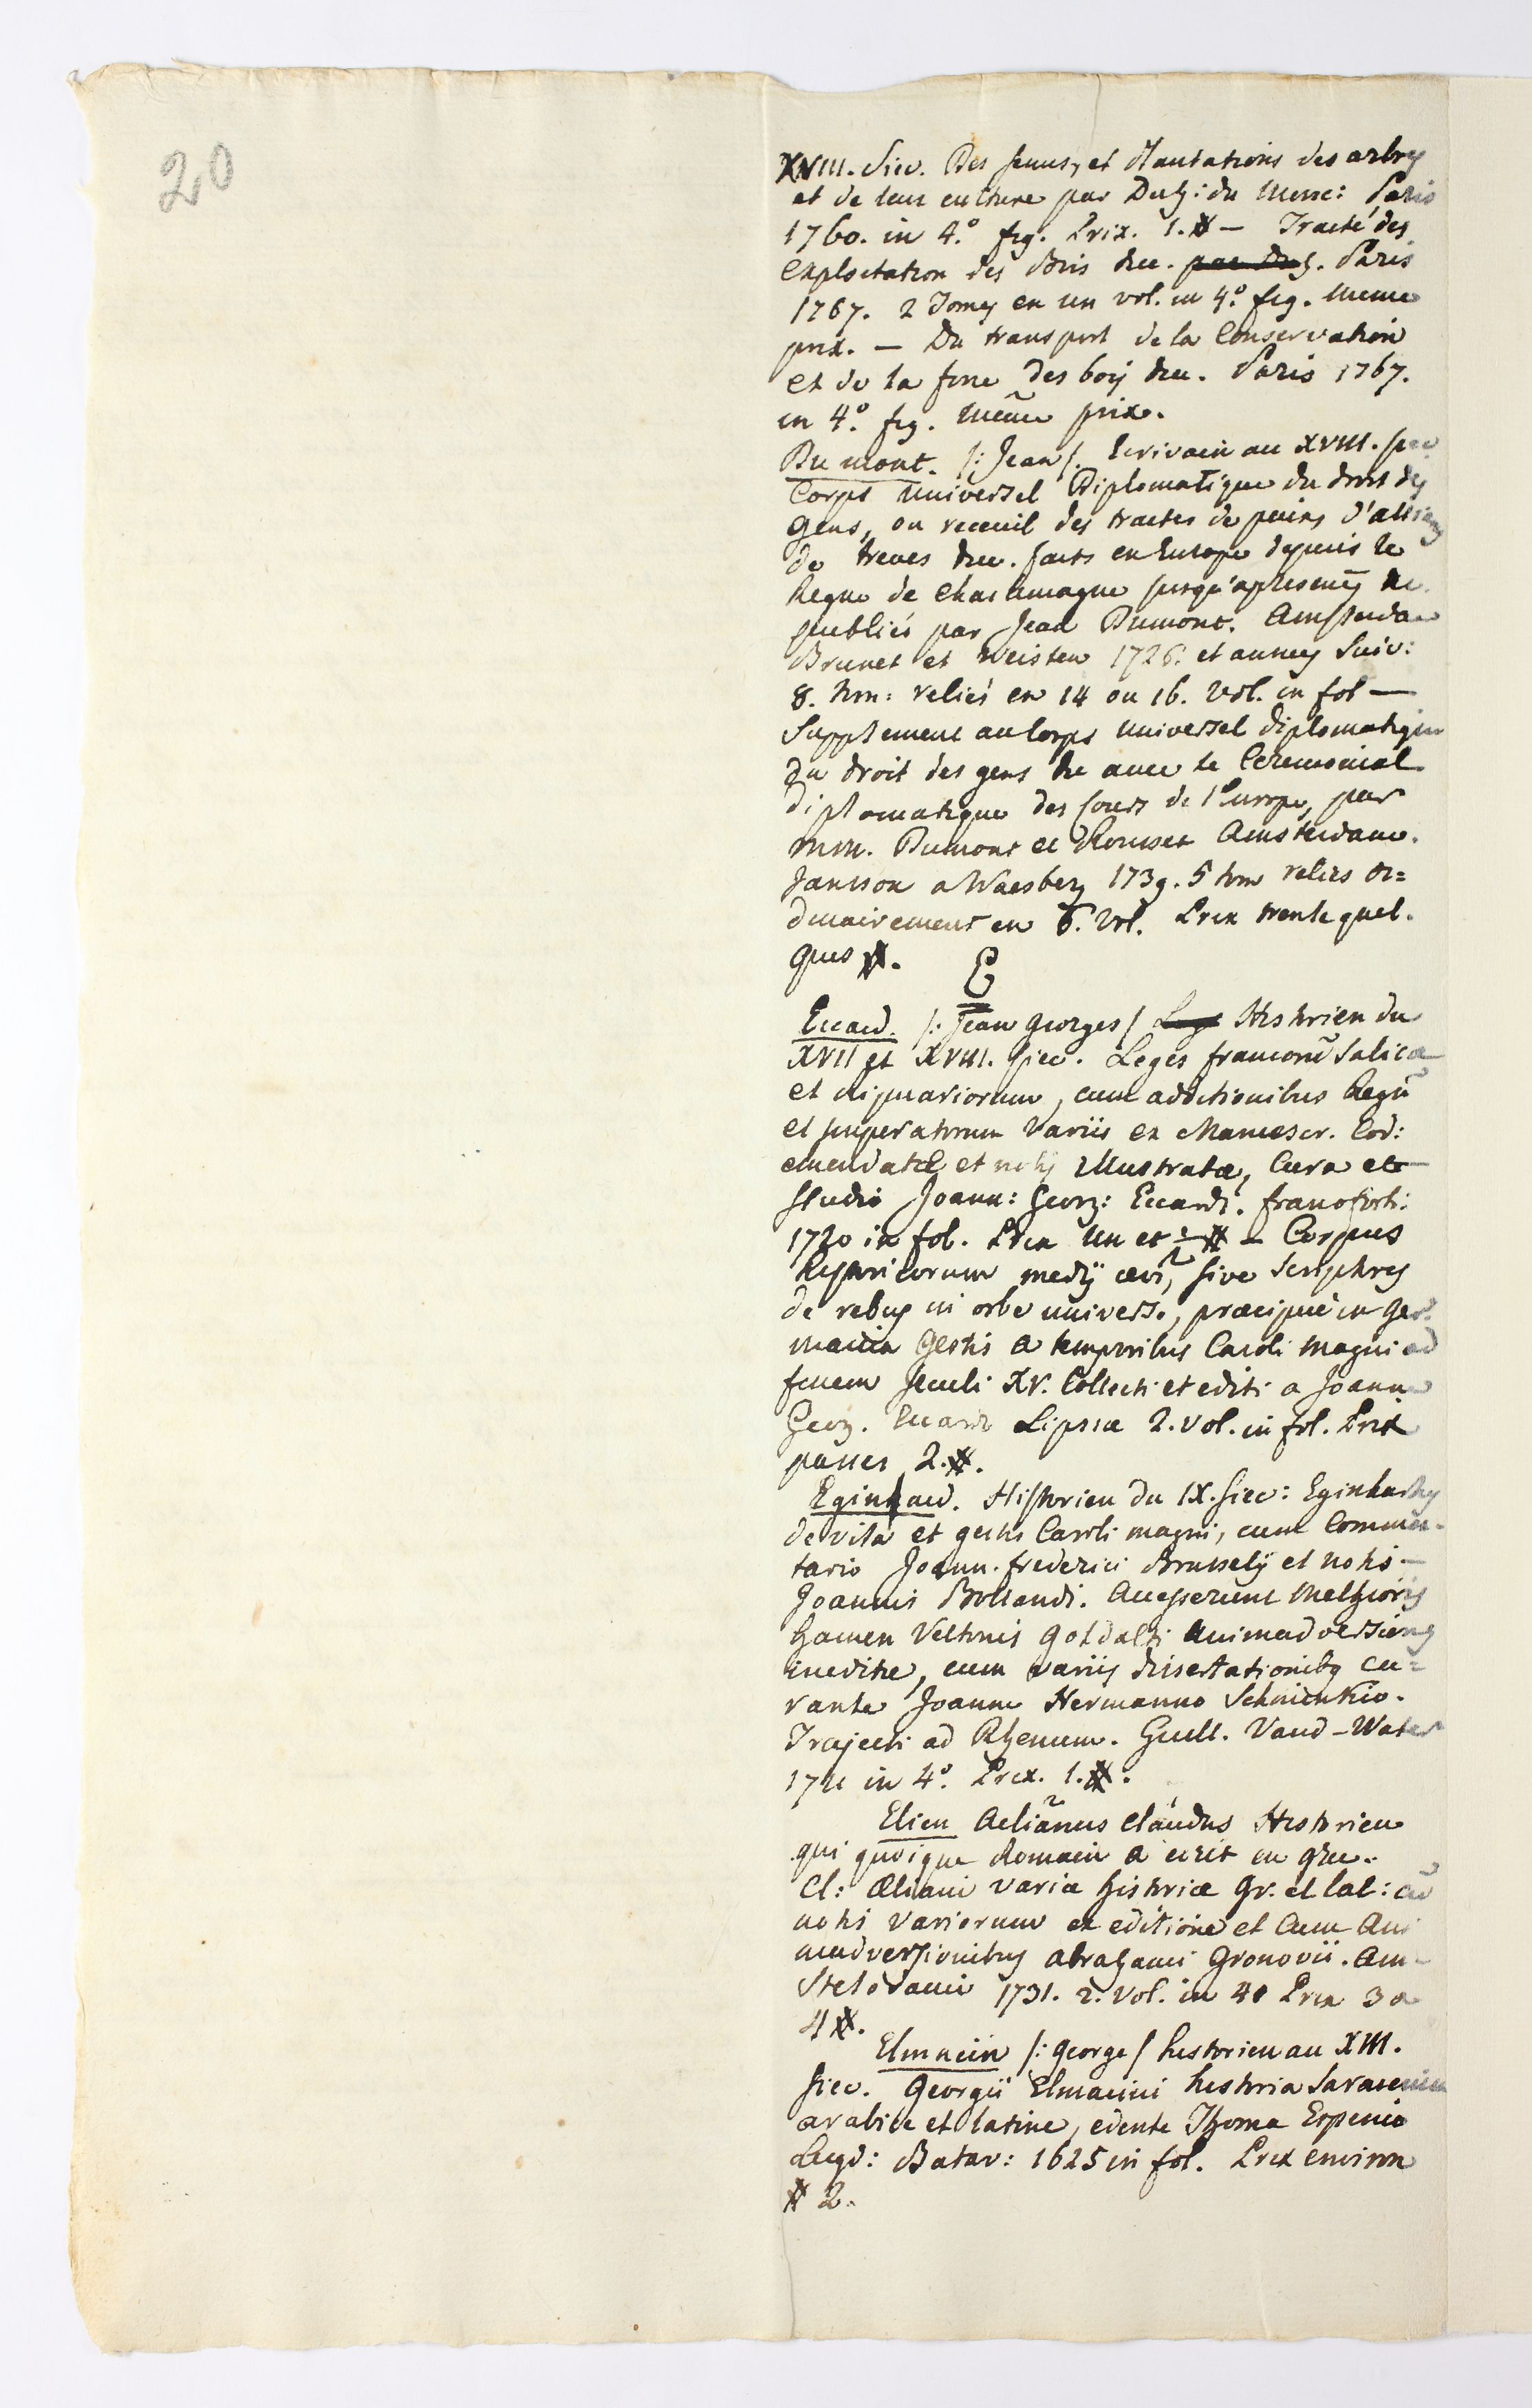 20
XVIII. Siec. Des semis, et Plantations des arbres
et de leur culture par Duh: du Monc: Paris
1760. in 4.º fig. Prix. 1.# — Traité des
exploitation des Bois &c. par Duh. Paris
1767. 2 Tomes en un vol. in 4.º fig. meme
prix. — Du transport de la Conservation
et de la force des bois &c. Paris 1767.
in 4.º fig. meme prix.
Du mont. /: Jean /. Ecrivain au XVIII. siec
Corps universel Diplomatique du droit des
gens, ou receuil des traites de paix, d'alliance
de treves &c. faits en Europe depuis le
Regne de Charlemagne jusqu'apresent
publiés par Jean Dumont. Amsterdam
Brunet et Weisten 1726. et annees suiv:
8. tom: reliés en 14 ou 16. vol. in fol —
Supplement au Corps universel diplomatique
du droit des gens &c avec le Ceremonial
diplomatique des Cours de l'Europe, par
mm. Dumont et Rousset Amsterdam.
Jansson a Waesberg 1739. 5 tom reliés or=
dinairement en 6. vol. Prix trente quel.
ques #.
E
Eccard. /: Jean Georges / Historien du
XVII et XVIII. siec. Leges francorũ Salicæ
et Ripuariorum, cum additionibus Regũ
et Imperatorum variis ex Manuscr. Cod:
emendatæ et notis illustratæ, Cura et
studio Joann: Georg: Eccardi. francoforti:
1720 in fol. Prix un et 1/2 # — Corpus
historicorum medij ævi, sive scriptores
de rebus in orbe universo, præcipuè in Ger.
mania gestis a temporibus Caroli magni ad
finem seculi XV. Collecti et editi a Joann
Georg. Eccard Lipsiæ 2. vol. in fol. Prix
passer 2.#.
Eginhard. Historien du IX. siec: Eginhartus
de vita et gestis Caroli magni, cum Commen-
tario Joann. frederici Bresselij et notis —
Joannis Bollandi. Accesserunt Melchioris
hamen Veltonis Goldasti animadversiones
ineditæ, cum variis dissertationibq cu=
rante Joanne Hermanno Schminkio.
Trajecti ad Rhenum. Guill. Vand-Water
1711 in 4.º Prix. 1.#.
Elien Aelianus Claudus Historien
qui quoique Romain a ecrit en grec.
Cl: Æliani variæ historiæ gr. et lat: cũ
notis variorum ex editione et cum Ani
madversionibus abrahami Gronovii. Am-
stelodami 1731. 2. vol. in 4º Prix 3 a
4 #.
Elmacin /: George / historien au XIII.
siec. Georgii Elmacini historia Saracenica
arabice et latine, edente Thoma Erpenio
Lugd: Batav: 1625 in fol. Prix environ
# 2.